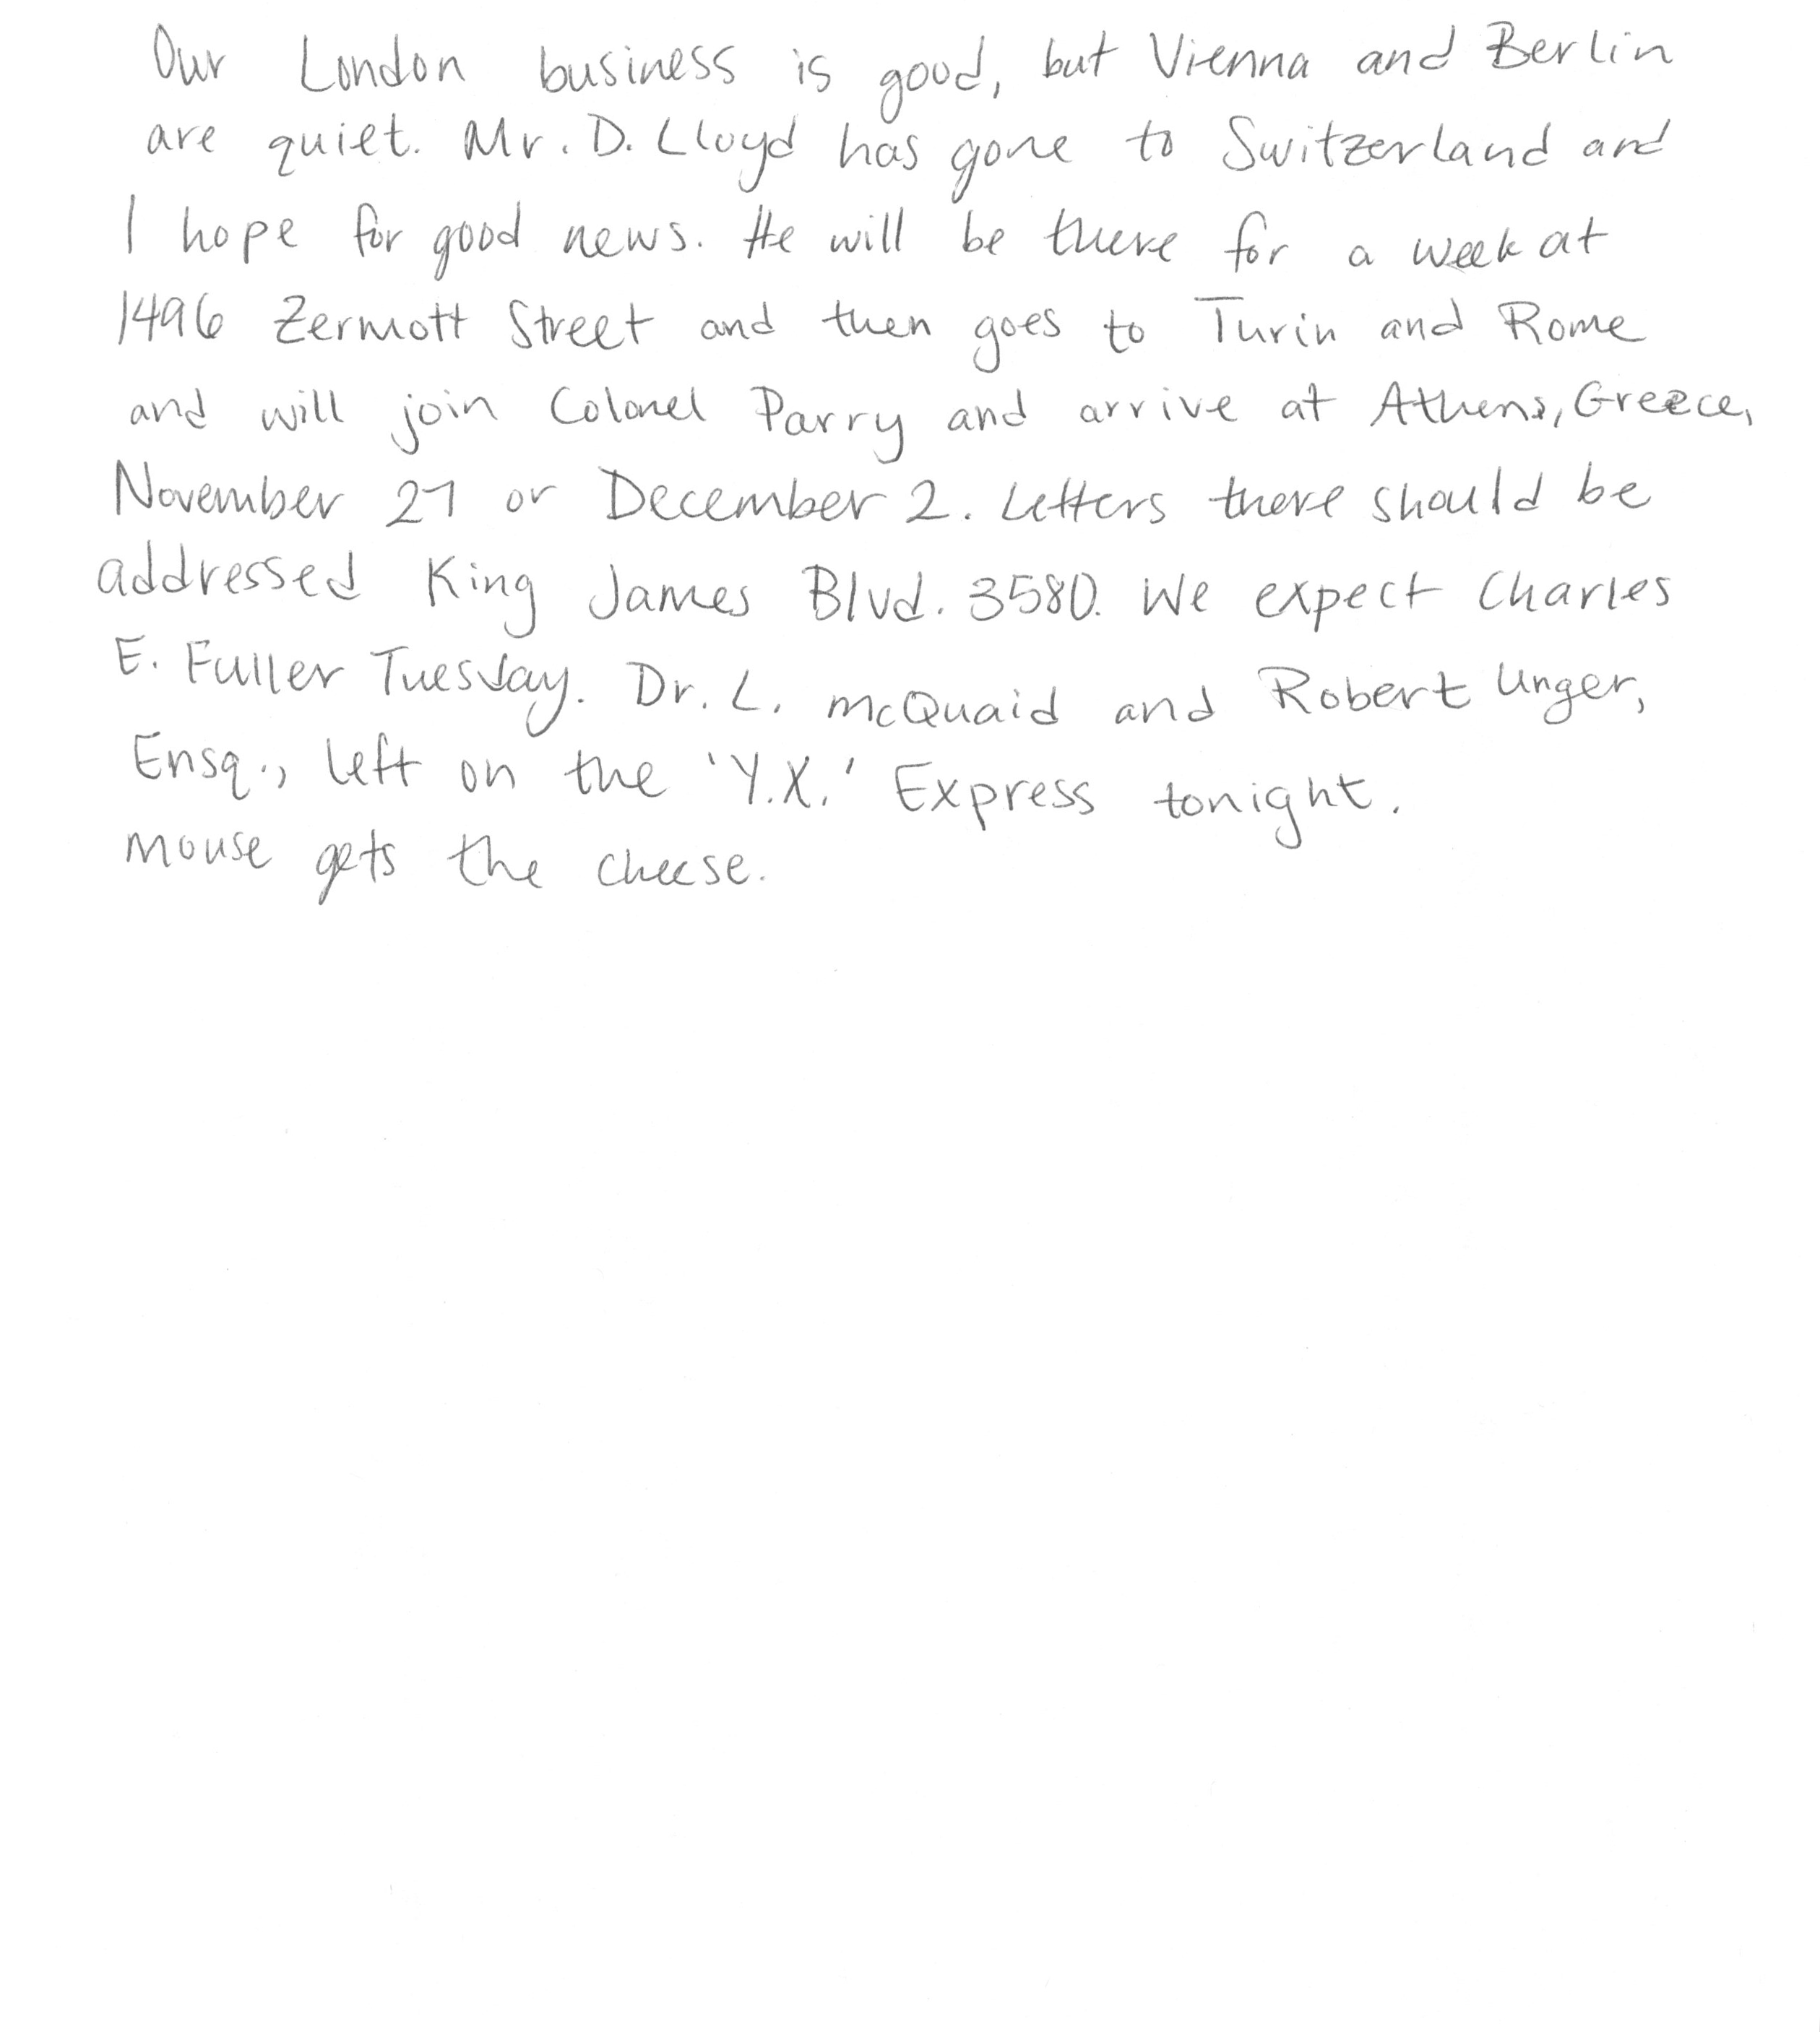 Our London business is good, but Vienna and Berlin
are quiet. Mr. D. Lloyd has gone to Switzerland and
I hope for good news. He will be there for a week at
1496 Zermott Street and then goes to Turin and Rome
and will join Colonel Parry and arrive at Athens, Greece,
November 27 or December 2. Letters there should be
addressed King James Blvd. 3580. We expect Charles
E. Fuller Tuesday. Dr. L. McQuaid and Robert Unger,
Ensq., left on the 'Y.X.' Express tonight.
mouse gets the cheese.